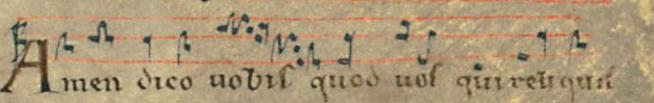 Amen dico uobis quod uos qui reliquisti